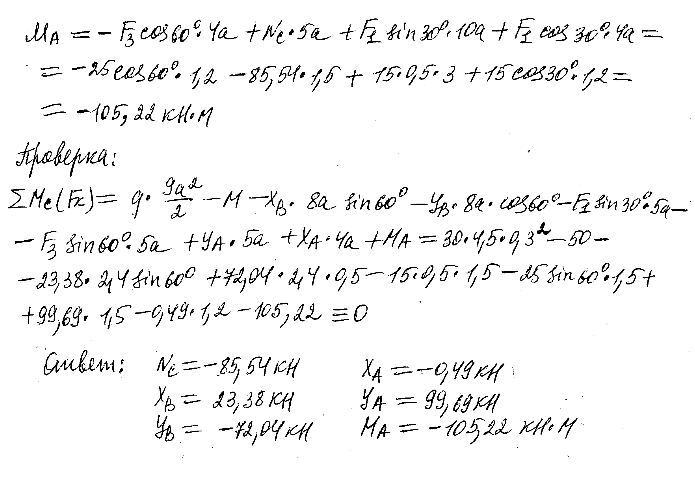 M_A = - F₃cos60°·4a + N_C·5a + F₁sin30°·10a + F₁cos30°·4a =
= -25cos60°·1,2 -85,54·1,5 + 15·0,5·3 + 15cos30°·1,2 =
= -105,22 кН·м
Проверка:
ΣM_C(F_K) = q·9a²/2 - M - X_B·8a sin60° - Y_B·8a·cos60° - F₁sin30°·5a -
- F₃sin60°·5a + Y_A·5a + X_A·4a + M_A = 30·4,5·0,3² - 50 -
- 23,38·2,4sin60° + 72,04·2,4·0,5 - 15·0,5·1,5 - 25sin60°·1,5 +
+ 99,69·1,5 - 0,49·1,2 - 105,22 ≡ 0
Ответ: N_C = -85,54 кН X_A = -0,49 кН
X_B = 23,38 кН Y_A = 99,69 кН
Y_B = -72,04 кН M_A = -105,22 кН·м